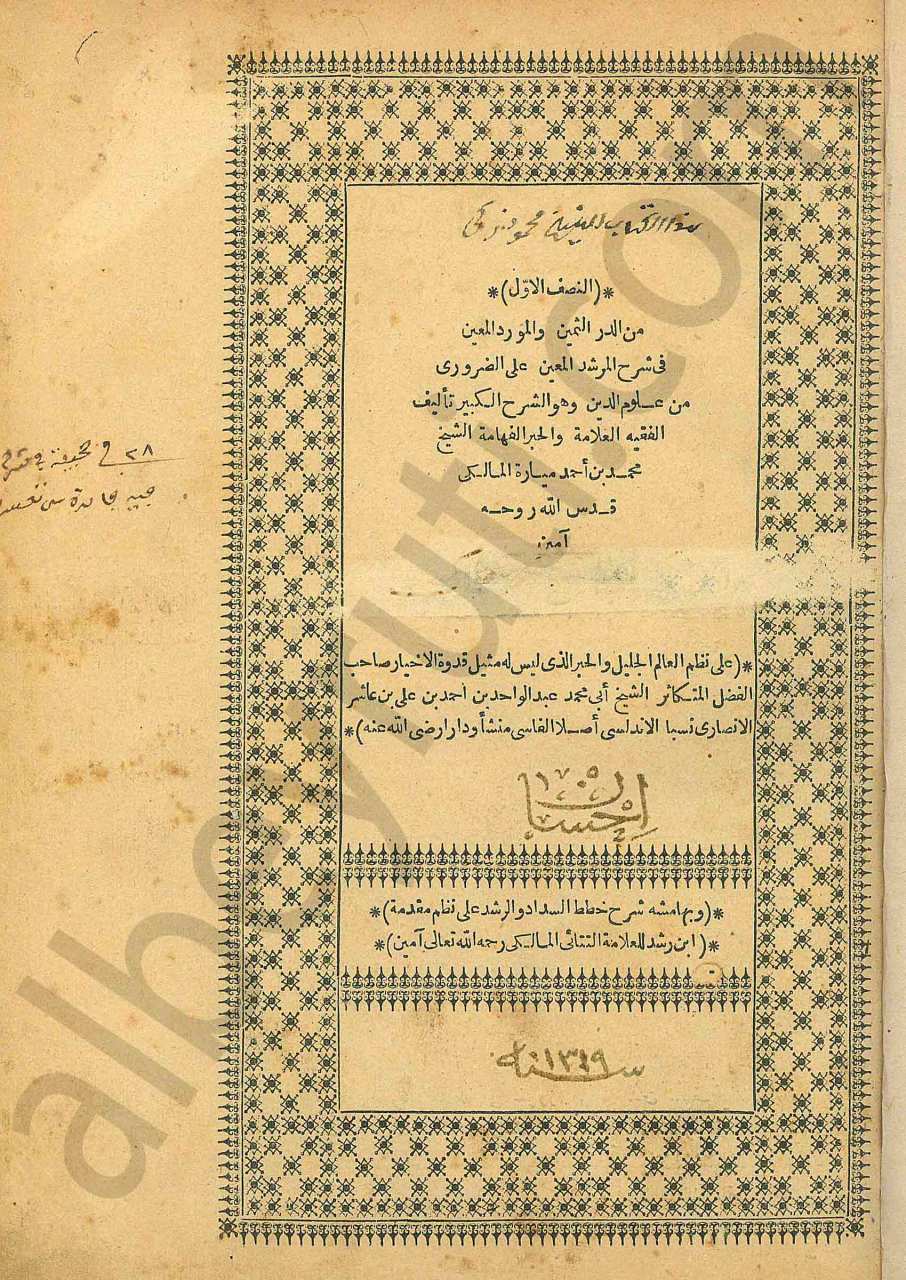 *(النصف الاوّل)*
من الدر الثمين والمورد المعين
فى شرح المرشد المعين على الضرورى
من علوم الدين وهو الشرح الكبير تأليف
الفقيه العلامة والحبر الفهامة الشيخ
محمد بن أحمد ميارة المالكى
قدس الله روحه
آمين
*(على نظم العالم الجليل والحبر الذى ليس له مثيل قدوة الاخيار صاحب
الفضل المتكاثر الشيخ أبى محمد عبد الواحد بن احمد بن على بن عاشر
الانصارى نسبا الاندلسى أصلا الفاسى منشأ ودارا رضى الله عنه)*
إحسان
*(وبهامشه شرح خطط السداد والرشد على نظم مقدمة)*
*(ابن رشد للعلامة التتائى المالكى رحمه الله تعالى آمين)*
سنة ١٣١٩
٢٨ فى
albeyruti.com